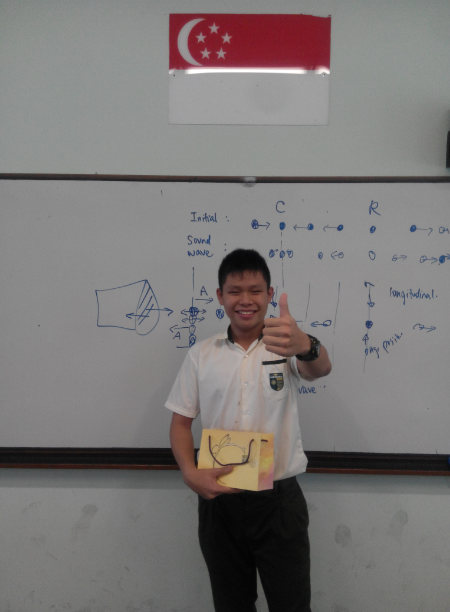 C R
Initial :
sound
wave :
A
longitudinal.
A
wave :